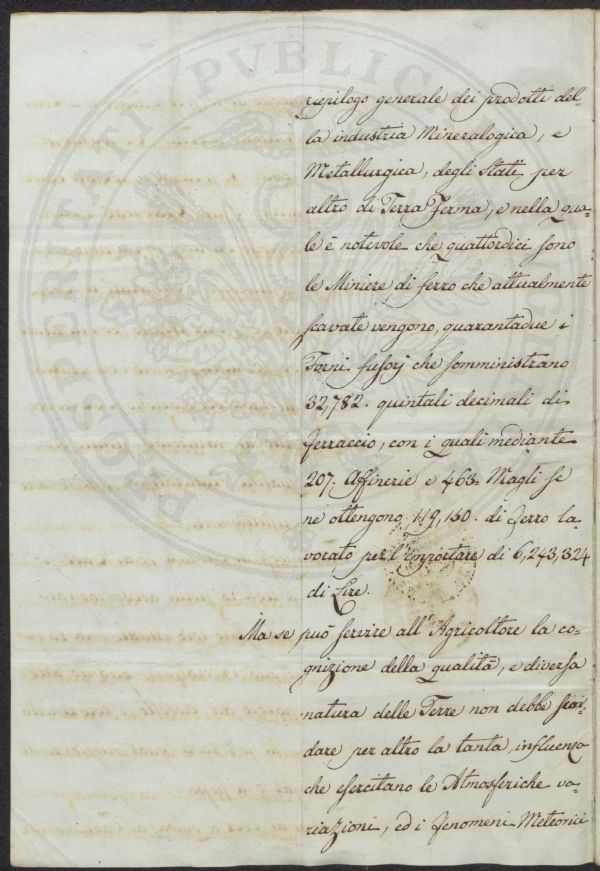 repilogo generale dei prodotti del-
la industria Mineralogica, e
Metallurgica, degli Stati per
altro di Terra Ferma, e nella qua-
le è notevole che quattordici sono
le Miniere di ferro che attualmente
scavate vengono, quarantadue i
Forni fusorj che somministrano
32,782. quintali decimali di
ferraccio, con i quali mediante
207. Affinerie e 463. Magli se
ne ottengono 119,150. di ferro la-
vorato per l'importare di 6,243,324
di Lire.
Ma se può servire all'Agricoltore la co-
gnizione della qualità, e diversa
natura delle Terre non debbe scor-
dare per altro la tanta influenza
che esercitano le Atmosferiche va-
riazioni, ed i fenomeni Meteorici
PROSPERITATI PVBLIC